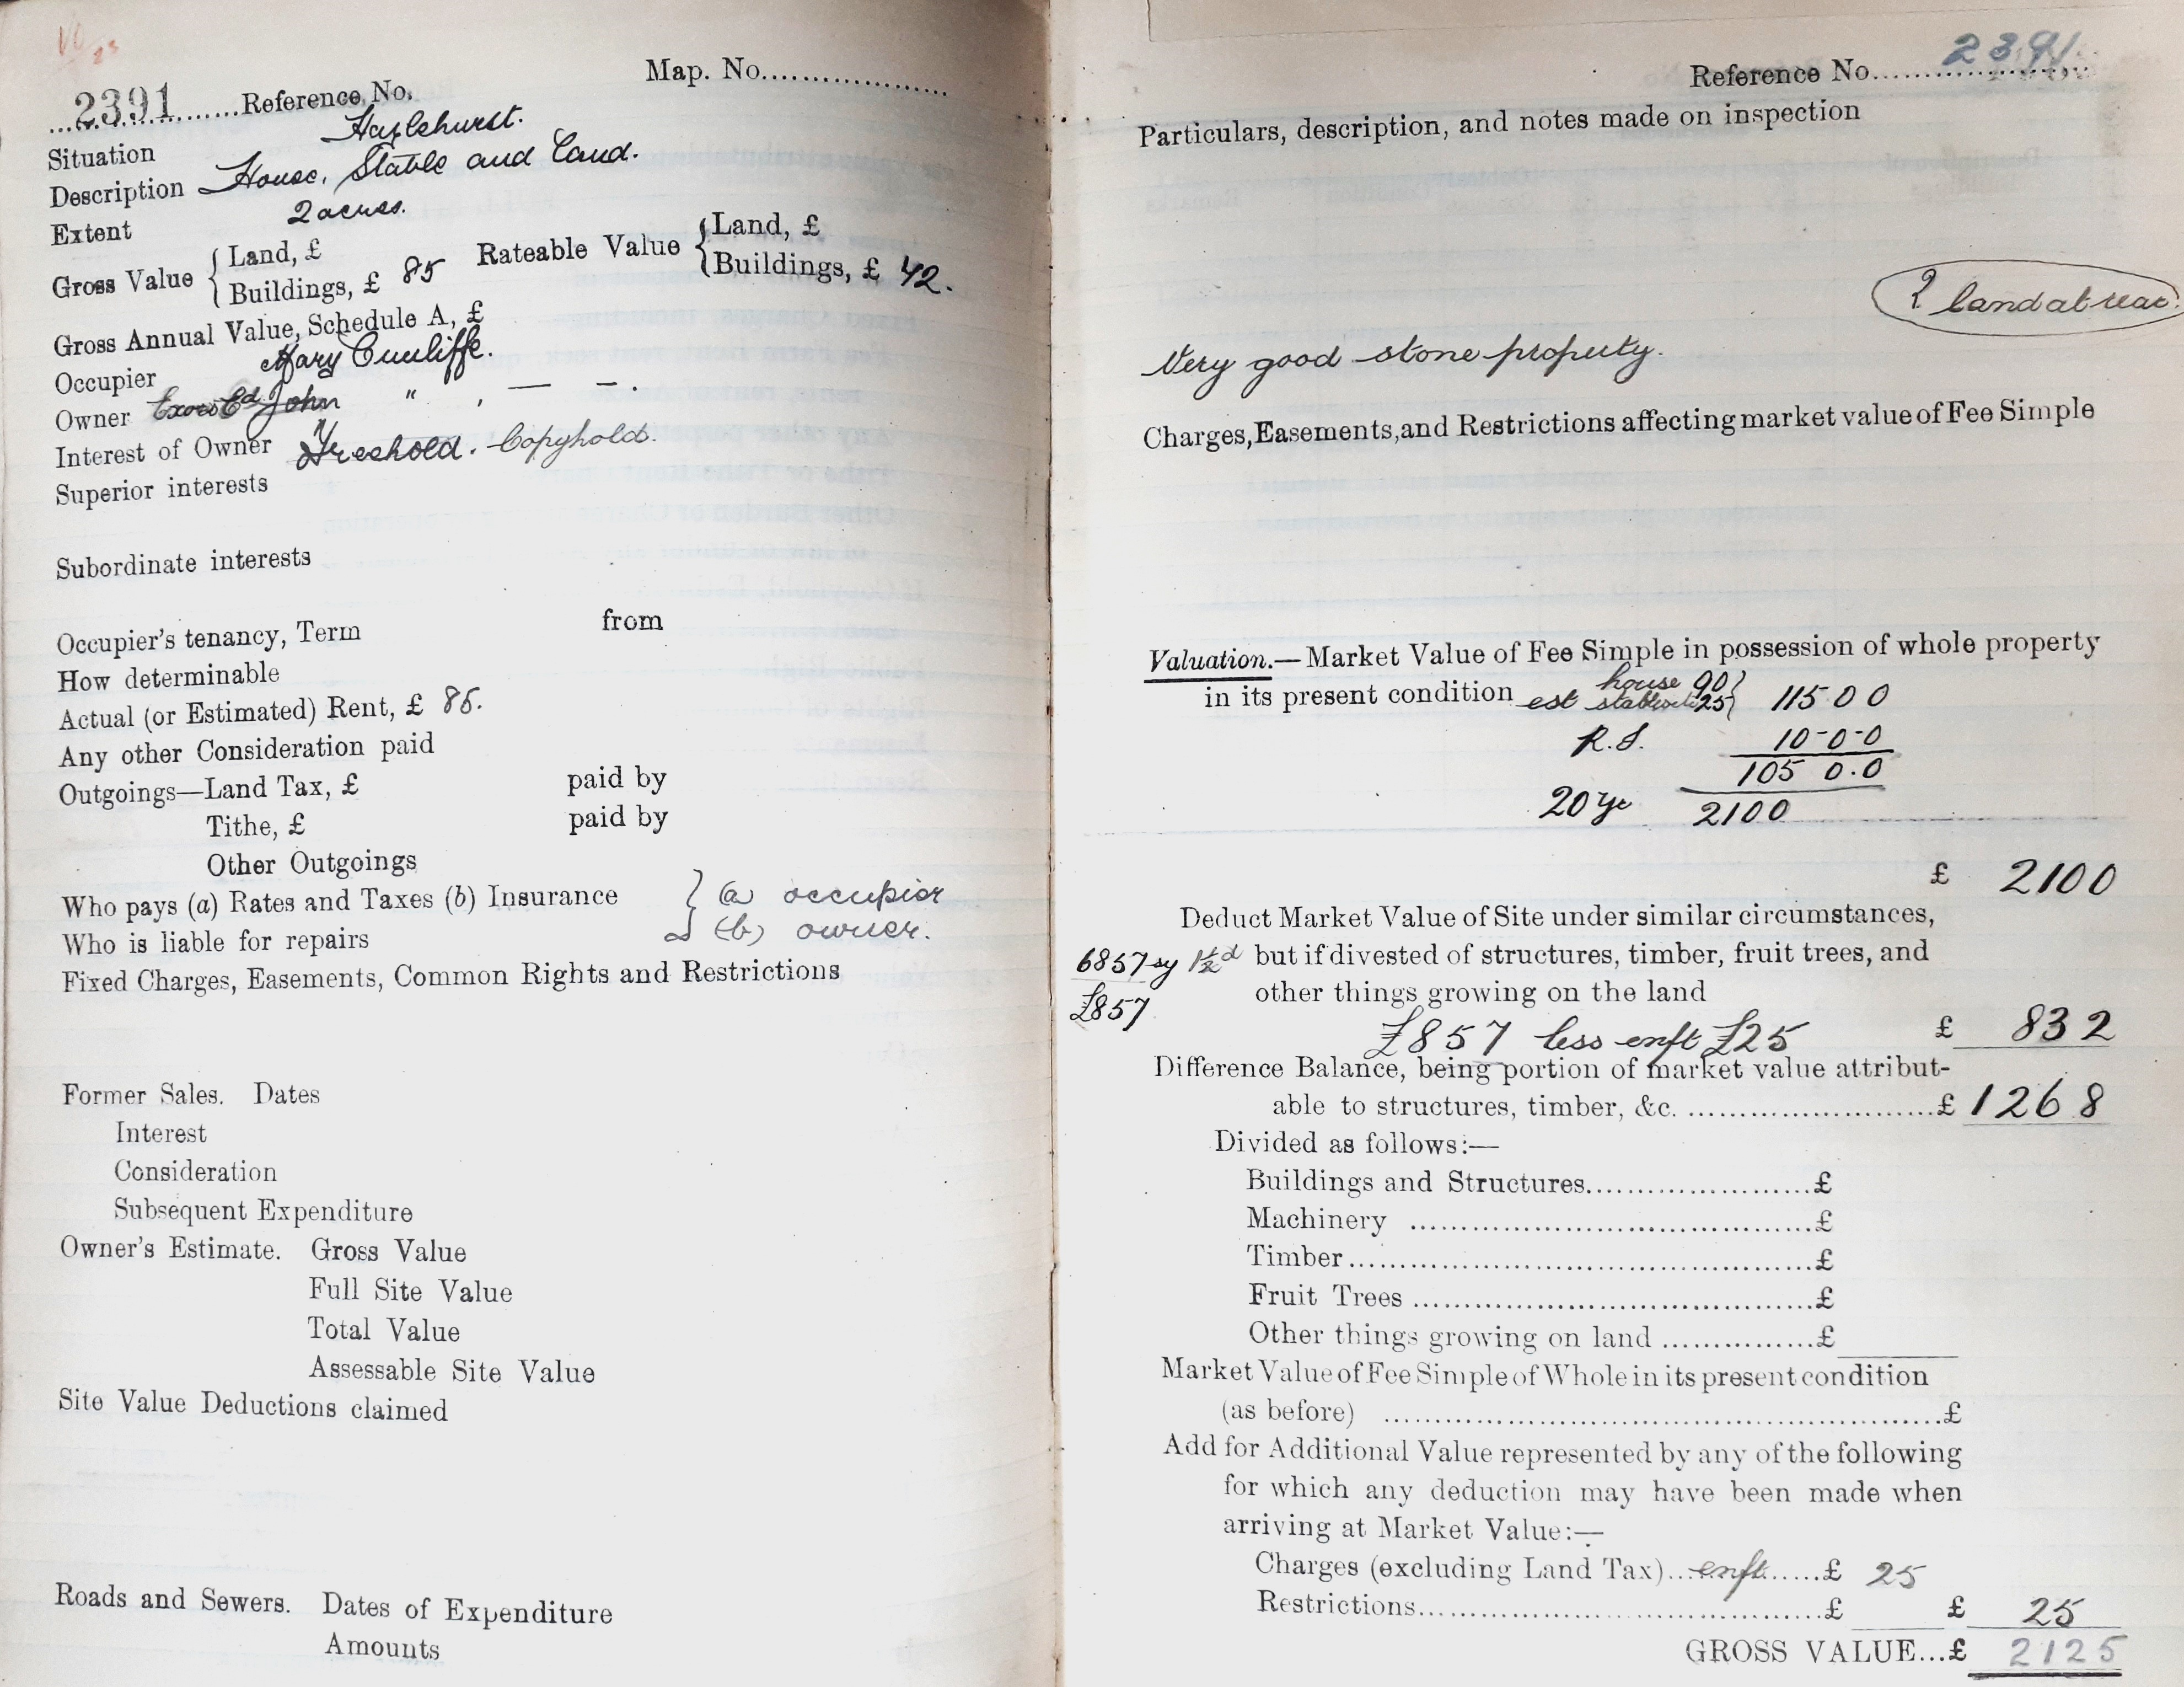 Map. No.
2391 Reference No.
Situation Hazlehurst.
Description House, Stable and Land.
Extent 2 acres.
Gross Value { Land, £
Buildings, £ 85
Rateable Value { Land, £
Buildings, £ 42.
Gross Annual Value, Schedule A, £
Occupier Mary Cunliffe.
Owner Exors Ed John " , — –.
Interest of Owner Freehold. Copyhold.
Superior interests
Subordinate interests
Occupier's tenancy, Term from
How determinable
Actual (or Estimated) Rent, £ 85.
Any other Consideration paid
Outgoings—Land Tax, £ paid by
Tithe, £ paid by
Other Outgoings
Who pays (a) Rates and Taxes (b) Insurance } (a) occupier
Who is liable for repairs (b) owner.
Fixed Charges, Easements, Common Rights and Restrictions
Former Sales. Dates
Interest
Consideration
Subsequent Expenditure
Owner's Estimate. Gross Value
Full Site Value
Total Value
Assessable Site Value
Site Value Deductions claimed
Roads and Sewers. Dates of Expenditure
Amounts
Reference No. 2391
Particulars, description, and notes made on inspection
? land at rear.
Very good stone property.
Charges, Easements, and Restrictions affecting market value of Fee Simple
Valuation.—Market Value of Fee Simple in possession of whole property
in its present condition est house 90 } 115 0 0
25
R.S. 10-0-0
105 0.0
20 yr 2100
£ 2100
Deduct Market Value of Site under similar circumstances,
6857 sy 1½d but if divested of structures, timber, fruit trees, and
£857 other things growing on the land
£857 less enft £25 £ 832
Difference Balance, being portion of market value attribut-
able to structures, timber, &c. £ 1268
Divided as follows:—
Buildings and Structures £
Machinery £
Timber £
Fruit Trees £
Other things growing on land £
Market Value of Fee Simple of Whole in its present condition
(as before) £
Add for Additional Value represented by any of the following
for which any deduction may have been made when
arriving at Market Value:—
Charges (excluding Land Tax) enft £ 25
Restrictions £ £ 25
GROSS VALUE...£ 2125